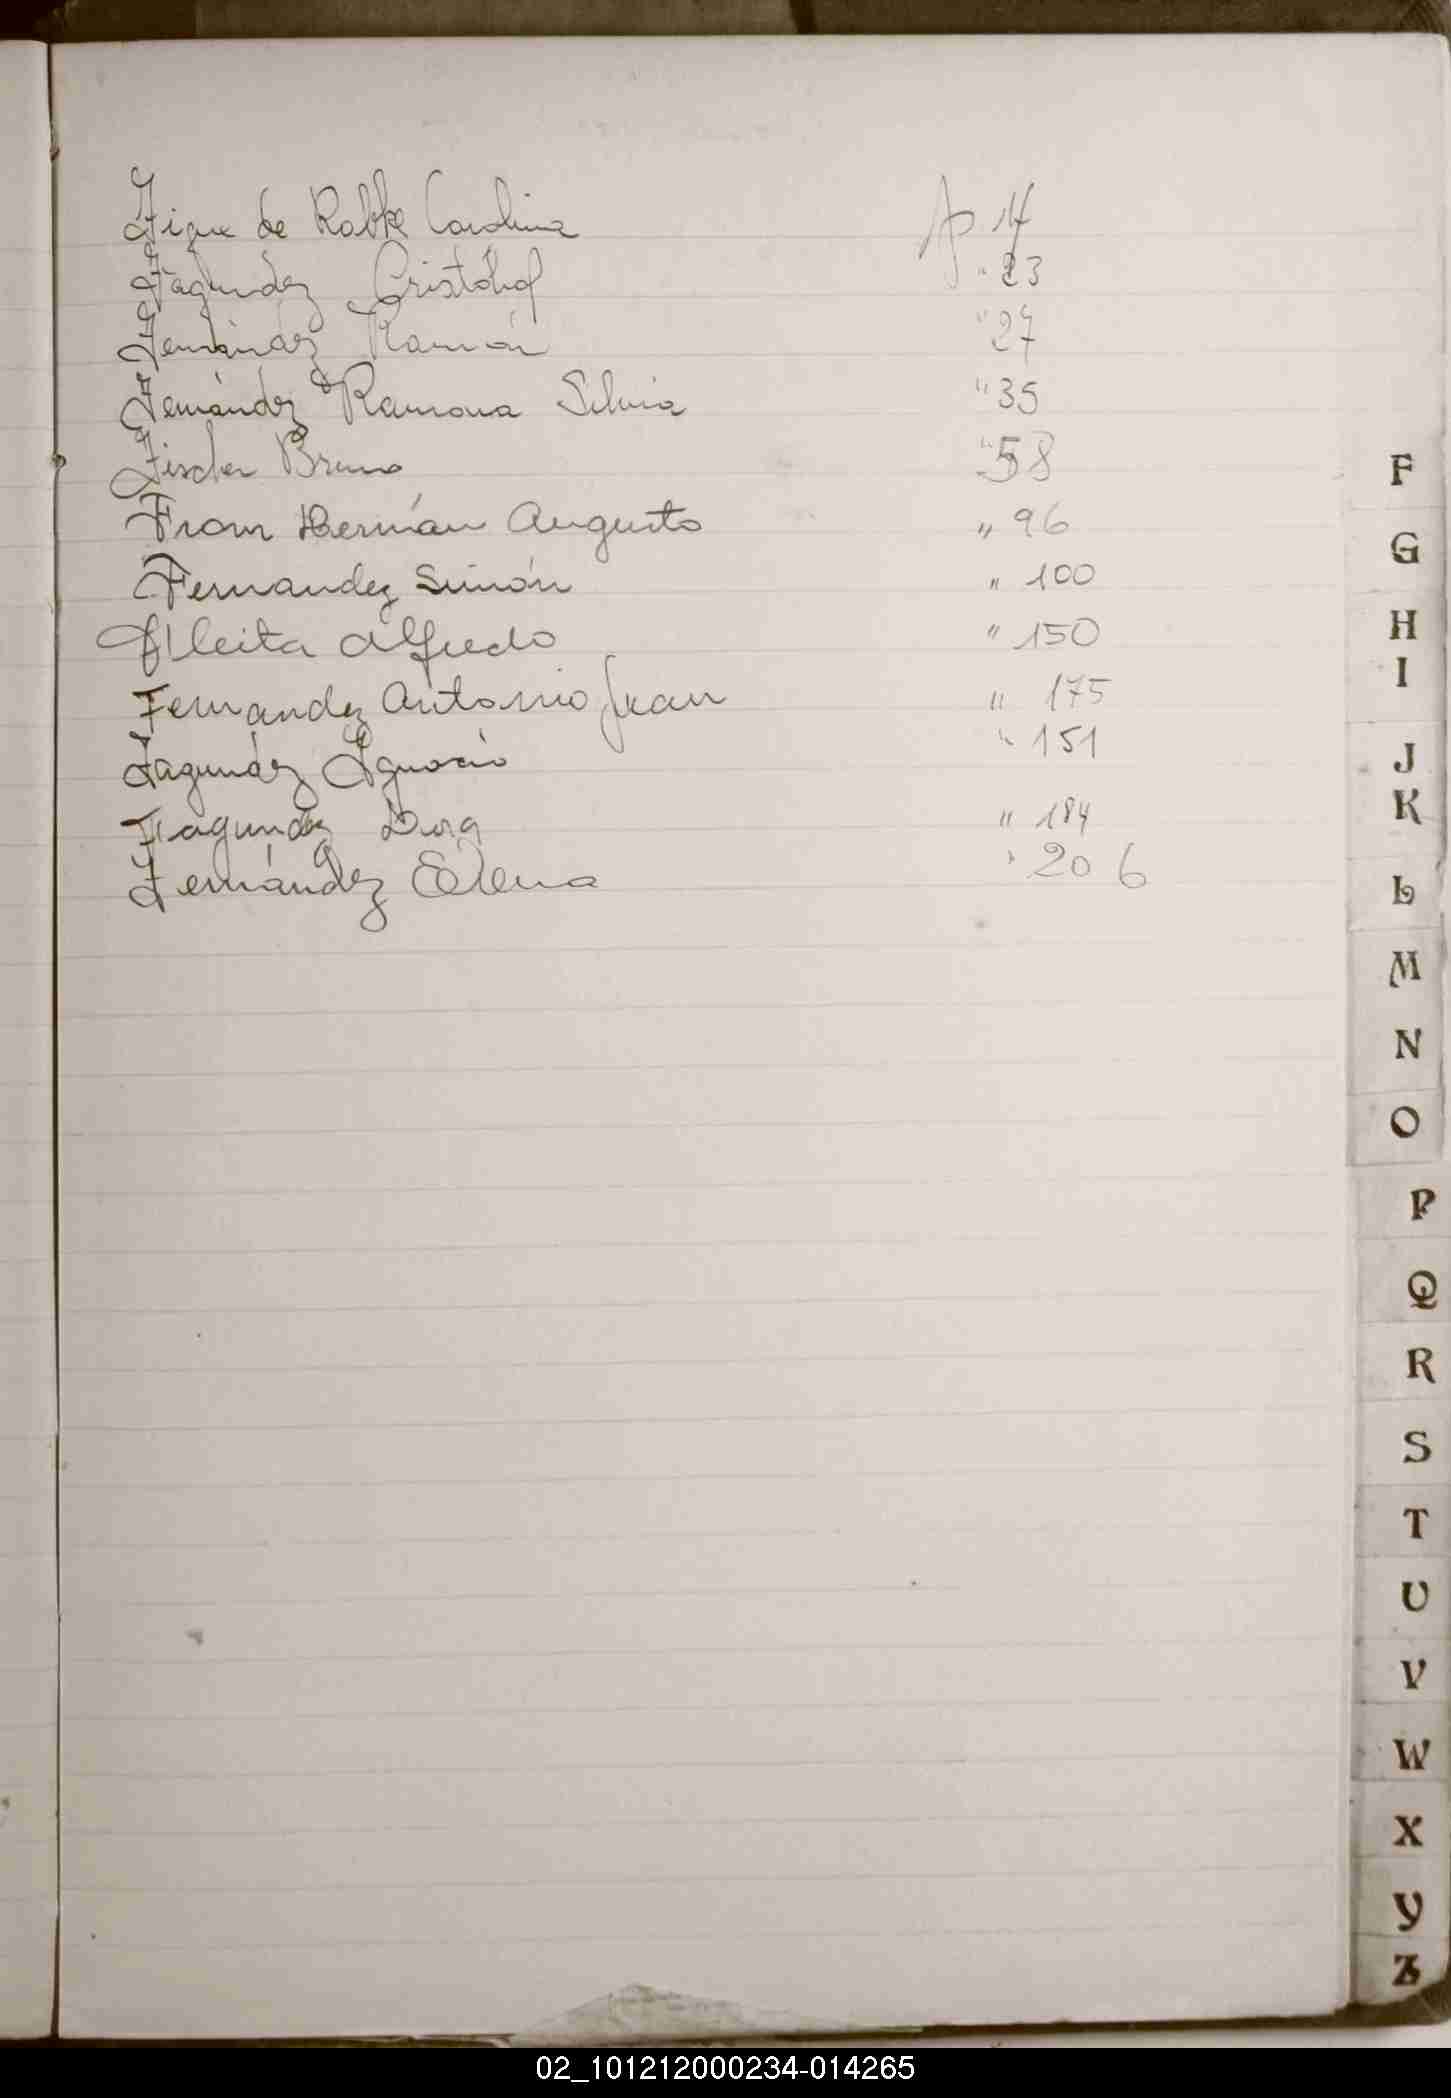 de Rabke Carolina
Fagundez Cristóbol " 23
Fernández Ramón " 27
Fernández Ramona Silvia " 35
Fischer Bruno " 58
From Hernán Augusto " 96
Fernandez Simón " 100
Fleita Alfredo " 150
Fernandez Antonio Juan " 175
Fagundez Ignacio " 151
Fagundez Dora " 184
Fernández Elena " 206
F
G
H
I
J
K
L
M
N
O
P
Q
R
S
T
U
V
W
X
Y
Z
02_101212000234-014265